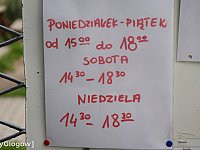 PONIEDZIAŁEK-PIĄTEK
od 15⁰⁰ do 18⁰⁰
SOBOTA
14³⁰ - 18³⁰
NIEDZIELA
14³⁰ - 18³⁰
yGlogow]